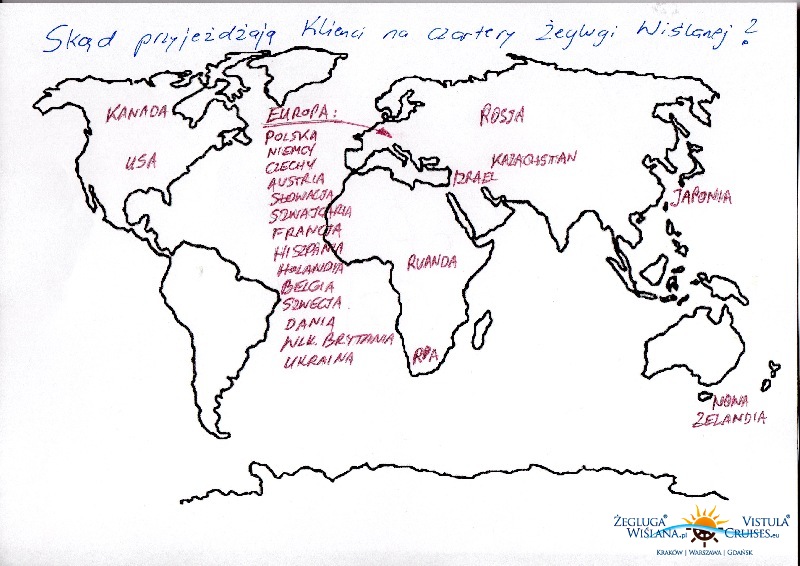 Skąd przyjeżdżają Klienci na czartery Żeglugi Wiślanej?
KANADA
USA
EUROPA:
POLSKA
NIEMCY
CZECHY
AUSTRIA
SŁOWACJA
SZWAJCARIA
FRANCJA
HISZPANIA
HOLANDIA
BELGIA
SZWECJA
DANIA
WLK. BRYTANIA
UKRAINA
ROSJA
KAZACHSTAN
IZRAEL
JAPONIA
RUANDA
RPA
NOWA
ZELANDIA
ŻEGLUGA®
WIŚLANA.pl
VISTULA®
CRUISES.eu
KRAKÓW | WARSZAWA | GDAŃSK